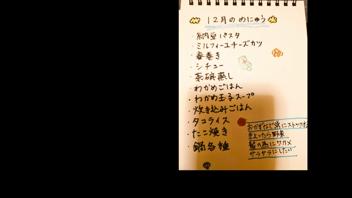 12月のめにゅう
・納豆パスタ
・ミルフィーユチーズカツ
・春巻き
・シチュー
・茶碗蒸し
・わかめごはん
・わかめ玉子スープ
・炊き込みごはん
・タコライス
・たこ焼き
・鍋各種